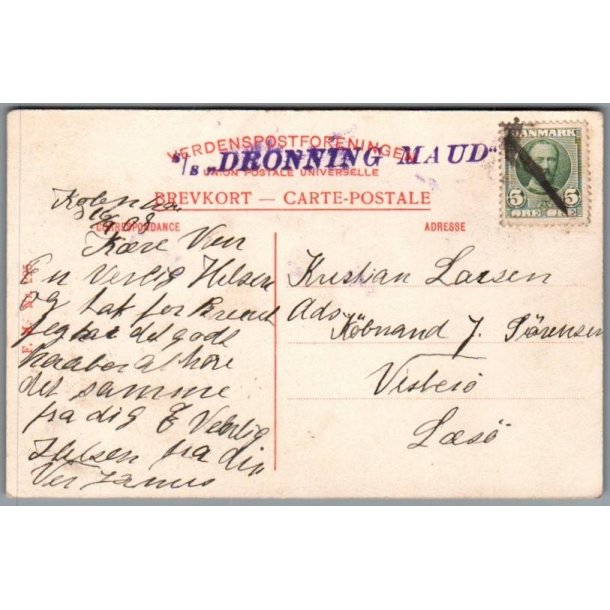 VERDENSPOSTFORENINGEN
S/S „DRONNING MAUD“
UNION POSTALE UNIVERSELLE
BREVKORT — CARTE-POSTALE
CORRESPONDANCE
ADRESSE
DANMARK
5 5
ØRE ØRE
08
Kære Ven
En Venlig Hilsen
og tak for Brevet
jeg har det godt
haaber at høre
det samme
fra dig E Venlig
Hilsen fra din
Ven
Kristian Larsen
Ads
Købmand J. Sørensen
Vesterø
Læsø